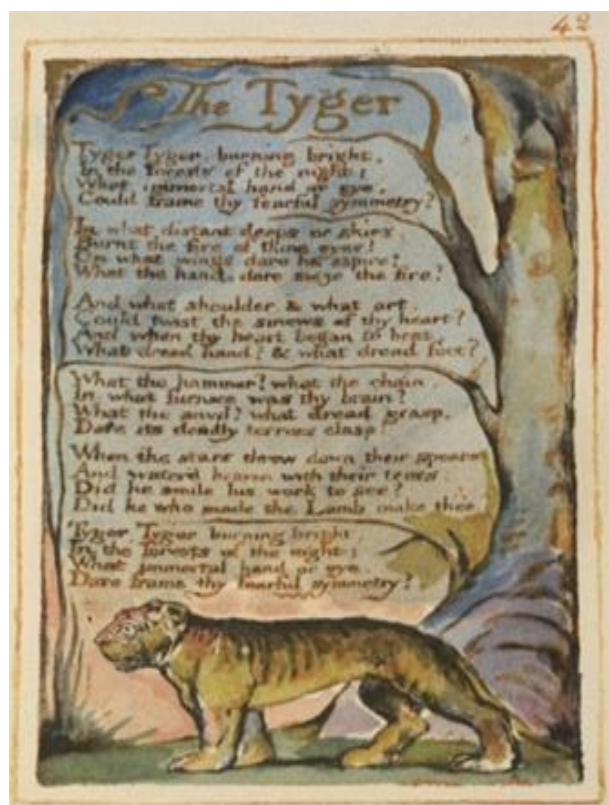 42
The Tyger
Tyger Tyger, burning bright,
In the forests of the night;
What immortal hand or eye,
Could frame thy fearful symmetry?
In what distant deeps or skies,
Burnt the fire of thine eyes?
On what wings dare he aspire?
What the hand, dare sieze the fire?
And what shoulder, & what art,
Could twist the sinews of thy heart?
And when thy heart began to beat,
What dread hand? & what dread feet?
What the hammer? what the chain,
In what furnace was thy brain?
What the anvil? what dread grasp,
Dare its deadly terrors clasp
When the stars threw down their spears
And water'd heaven with their tears
Did he smile his work to see?
Did he who made the Lamb make thee
Tyger Tyger burning bright,
In the forests of the night:
What immortal hand or eye,
Dare frame thy fearful symmetry?